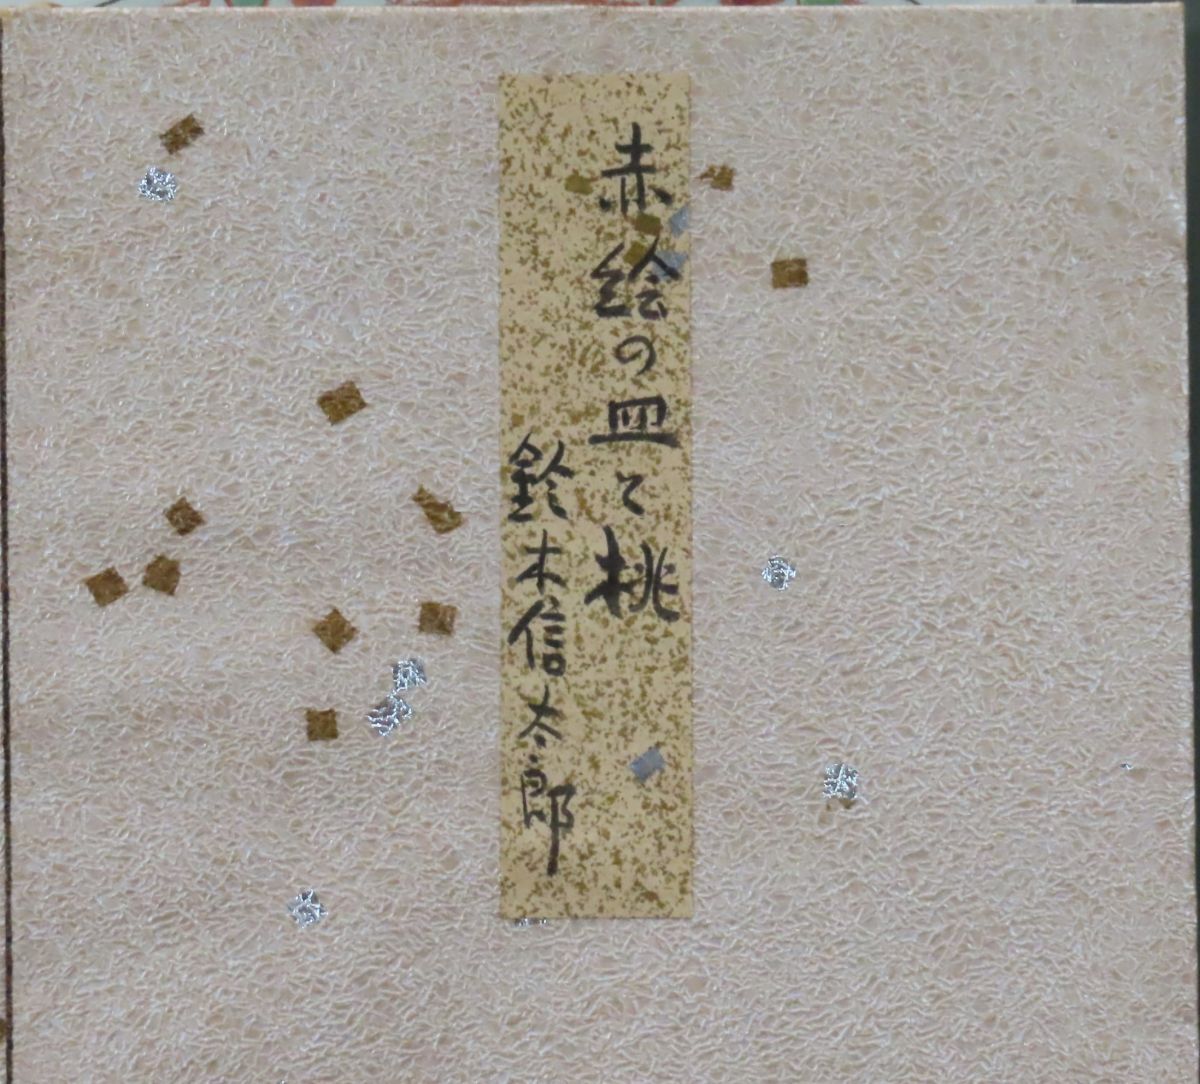 赤絵の皿と桃
鈴木信太郎